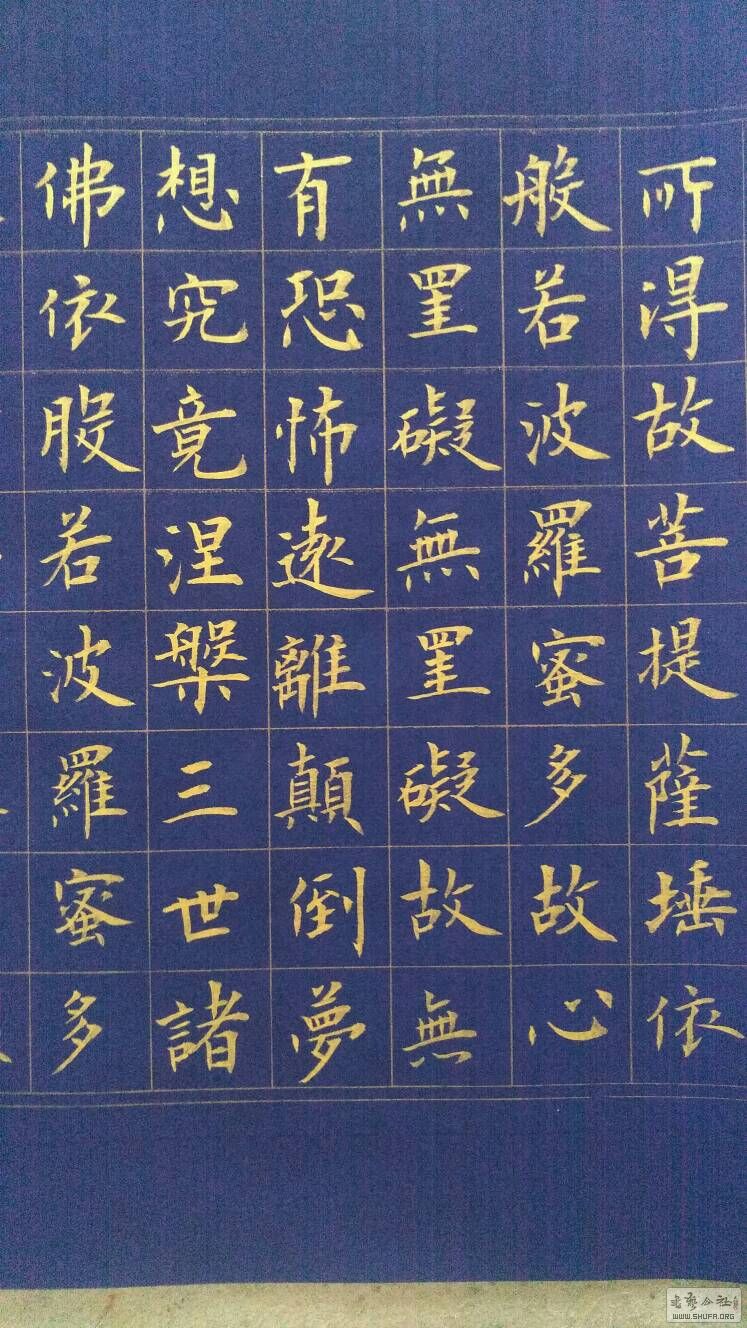 所得故菩提薩埵依
般若波羅蜜多故心
無罣礙無罣礙故無
有恐怖遠離顛倒夢
想究竟涅槃三世諸
佛依般若波羅蜜多
WWW.SHUFA.ORG